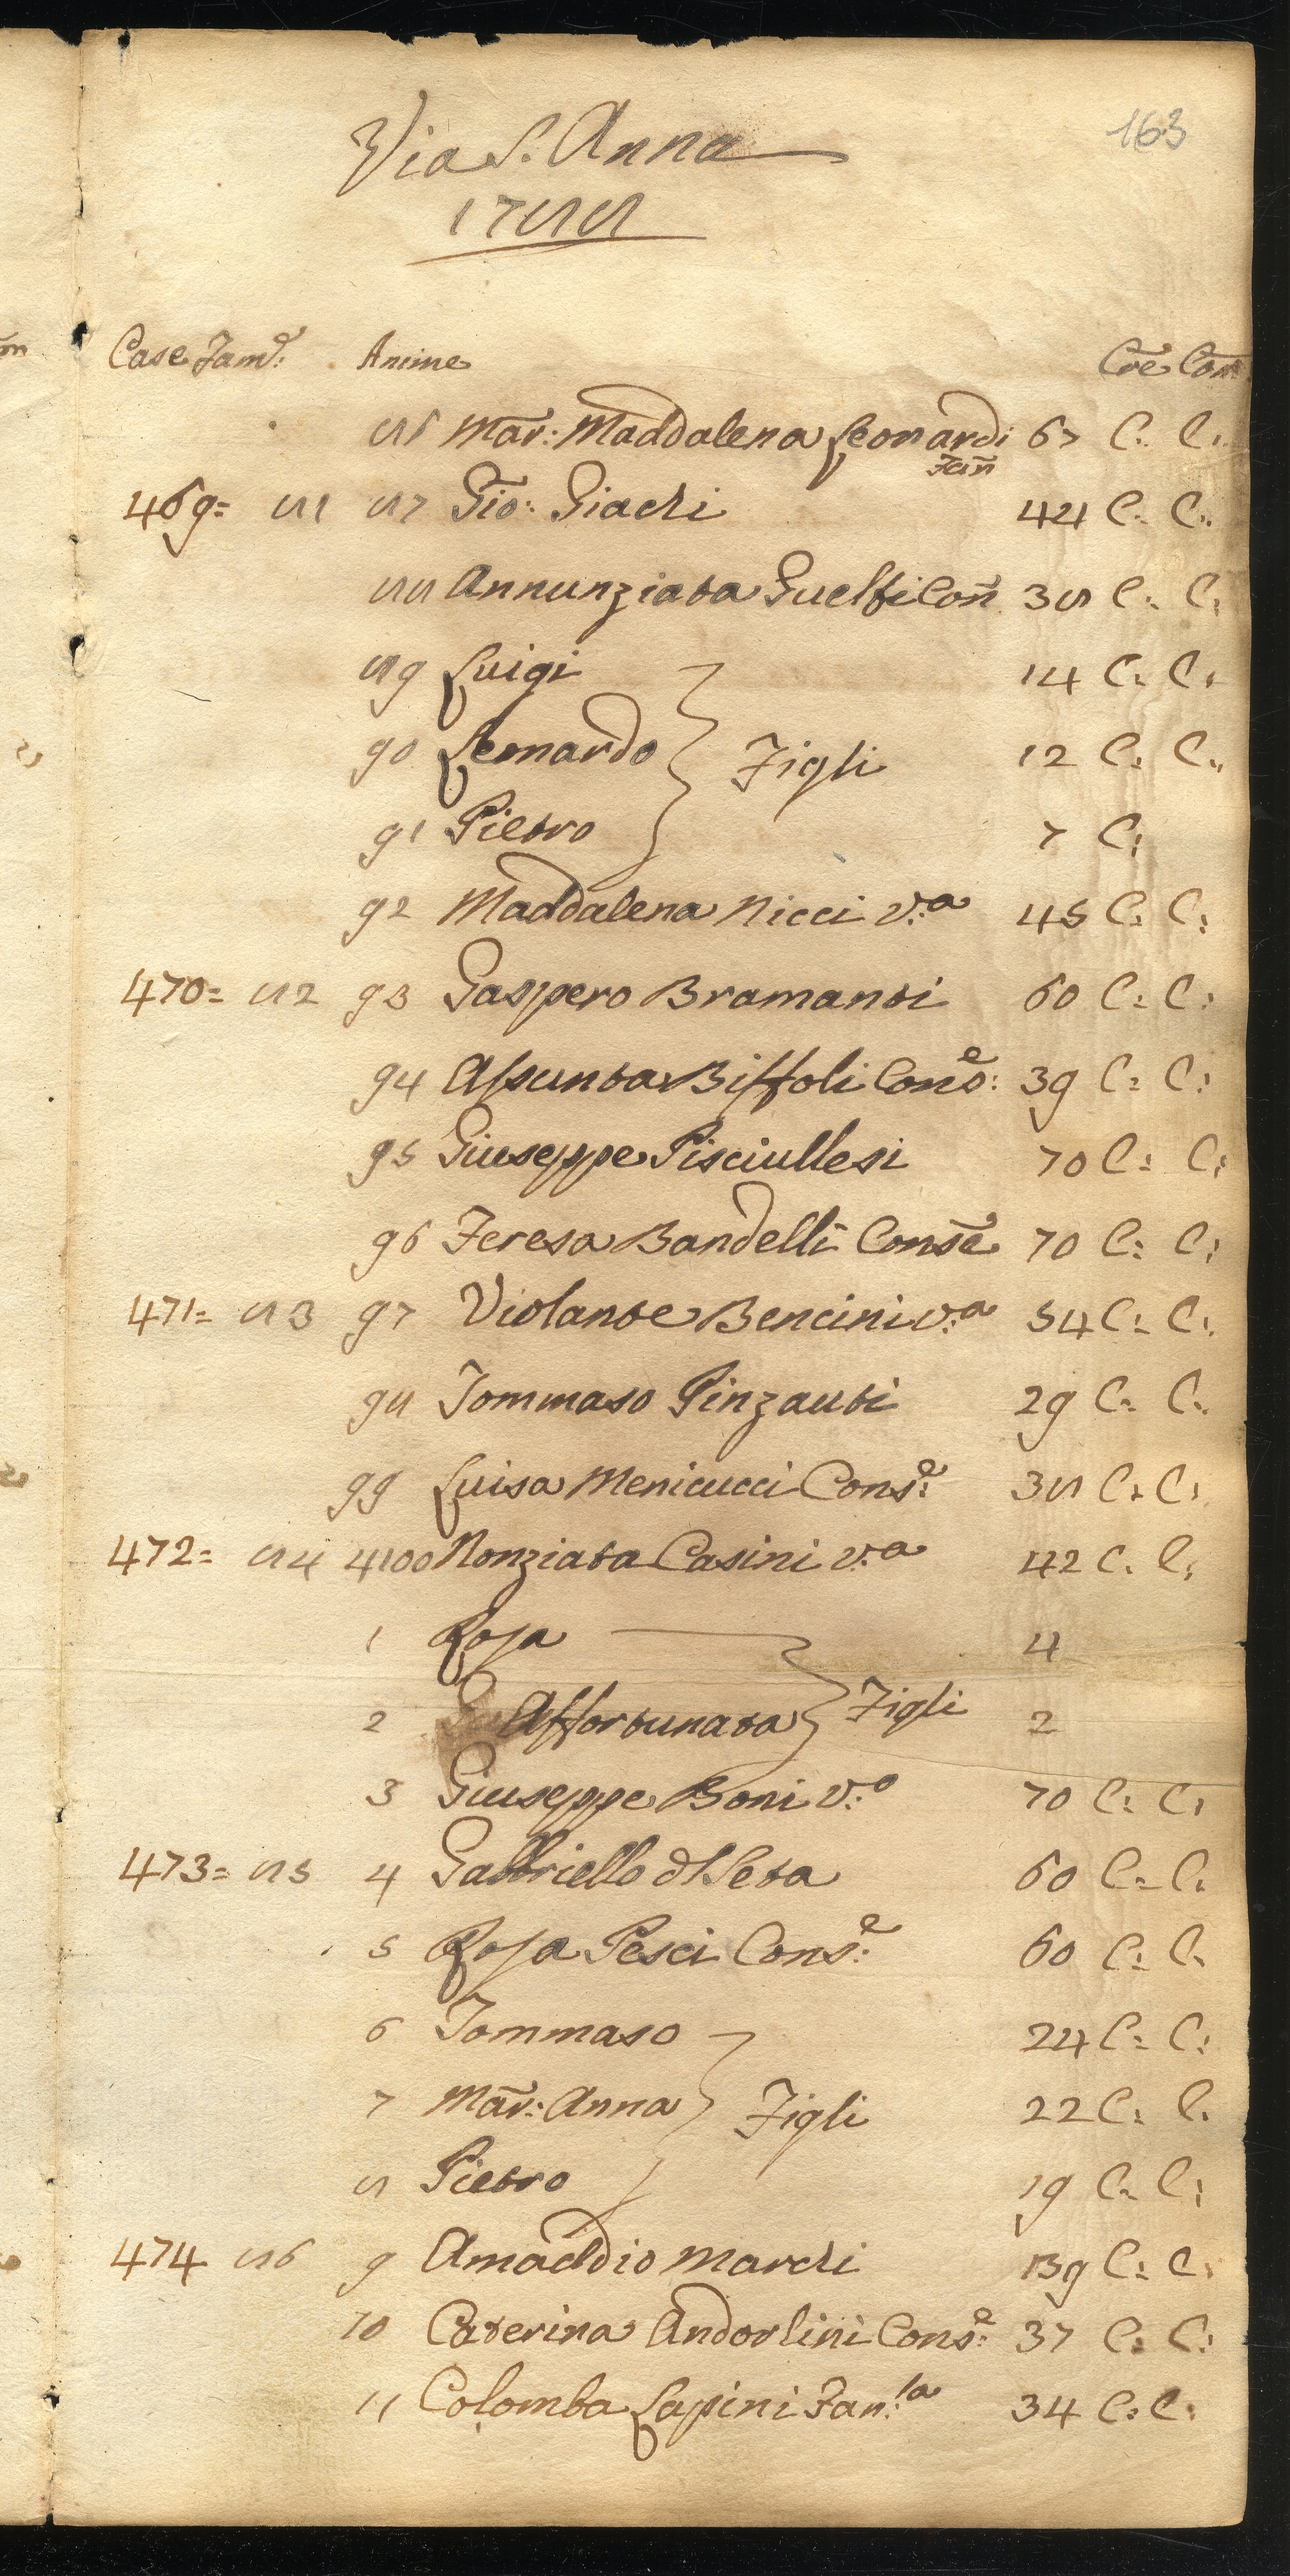 163
Via S. Anna
1788
Case Fam.e: Anime Cre Com
86 Mar: Maddalena Leonardi 67 C: C:
Fan
469= 81 87 Gio: Giachi 44 C: C:
88 Annunziata Guelfi Con 38 C: C:
89 Luigi 14 C: C:
90 Leonardo Figli 12 C: C:
91 Pietro 7 C:
92 Maddalena Nicci v:a 45 C: C:
470= 82 93 Gaspero Bramanti 60 C: C:
94 Assunta Biffoli Cons:e 39 C: C:
95 Giuseppe Pisciullesi 70 C: C:
96 Teresa Bandelli Conse 70 C: C:
471= 83 97 Violante Bencini v:a 54 C: C:
98 Tommaso Pinzauti 29 C: C:
99 Luisa Menicucci Cons:e 38 C: C:
472= 84 4100 Nonziata Casini v:a 42 C: C:
1 Rosa 4
2 Affortunata Figli 2
3 Giuseppe Boni v:o 70 C: C:
473= 85 4 Gabbriello del Seta 60 C: C:
5 Rosa Pesci Cons:e 60 C: C:
6 Tommaso 24 C: C:
7 Mar: Anna Figli 22 C: C:
8 Pietro 19 C: C:
474 86 9 Amaddio Marchi 39 C: C:
10 Caterina Andorlini Cons:e 37 C: C:
11 Colomba Lapini Fan:la 34 C: C: